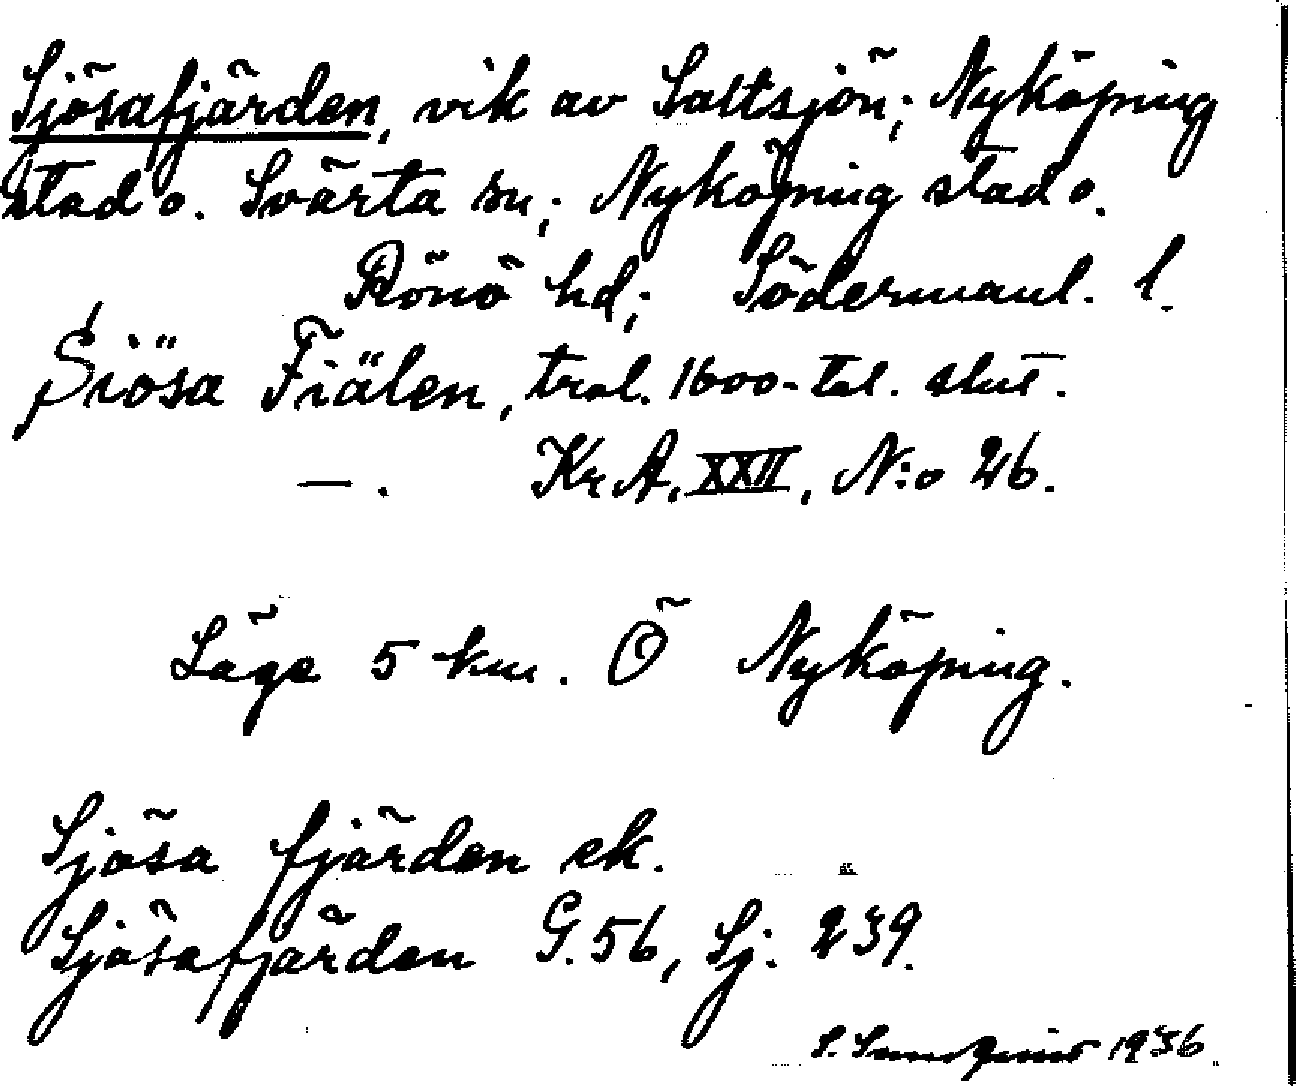 Sjösafjärden, vik av Saltsjön; Nyköping
stad o. Svärta sn; Nyköping stad o.
Rönö hd; Södermanl. l.
Siösa Fiälen, trol. 1600-tal. slut.
—. KrA, XXII, N:o 26.
Läge 5 km. Ö Nyköping.
Sjösa fjärden ek.
Sjösafjärden G. 56, Sj. 239.
S. 1936